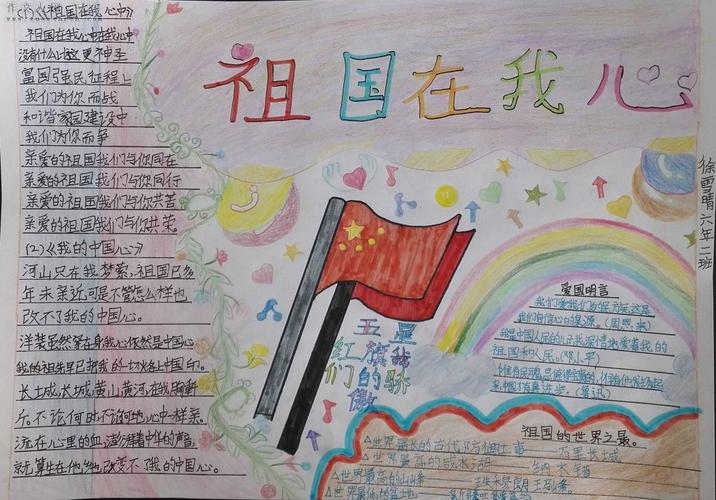 (1)《祖国在我心中》
祖国在我心中在我心中
没有什么比这更神圣
富国强民征程上
我们为你而战
和谐家园建设中
我们为你而争
亲爱的祖国我们与你同在
亲爱的祖国我们与你同行
亲爱的祖国我们与你共苦
亲爱的祖国我们与你共荣。
(2)《我的中国心》
河山只在我梦萦,祖国已多
年未亲近,可是不管怎么样也
改不了我的中国心。
洋装虽然穿在身,我心依然是中国心
我的祖先早已把我的一切烙上中国印。
长城,长城黄山黄河在我胸
不论何时不论何地心中一样亲。
流在心里的血,澎湃着中华的声音,
就算生在他也改变不了我的中国心。
祖国在我心
五星
红旗我
们的骄
傲
爱国名言
我们爱我们的这是
我们自信心的源。(周恩来)
我是中国人民的儿子我深情地爱着我的
祖国和人民。(邓小平)
惟有民魂是值得的,惟有他发扬起
来,中国才有真进步。(鲁迅)
祖国的世界之最。
△世界最长的古代防御工事 万里长城
△世界最高的咸水湖 纳木错
△世界最高的山峰 珠穆朗玛峰
△世界最低的盆地
徐雪晴 六年二班